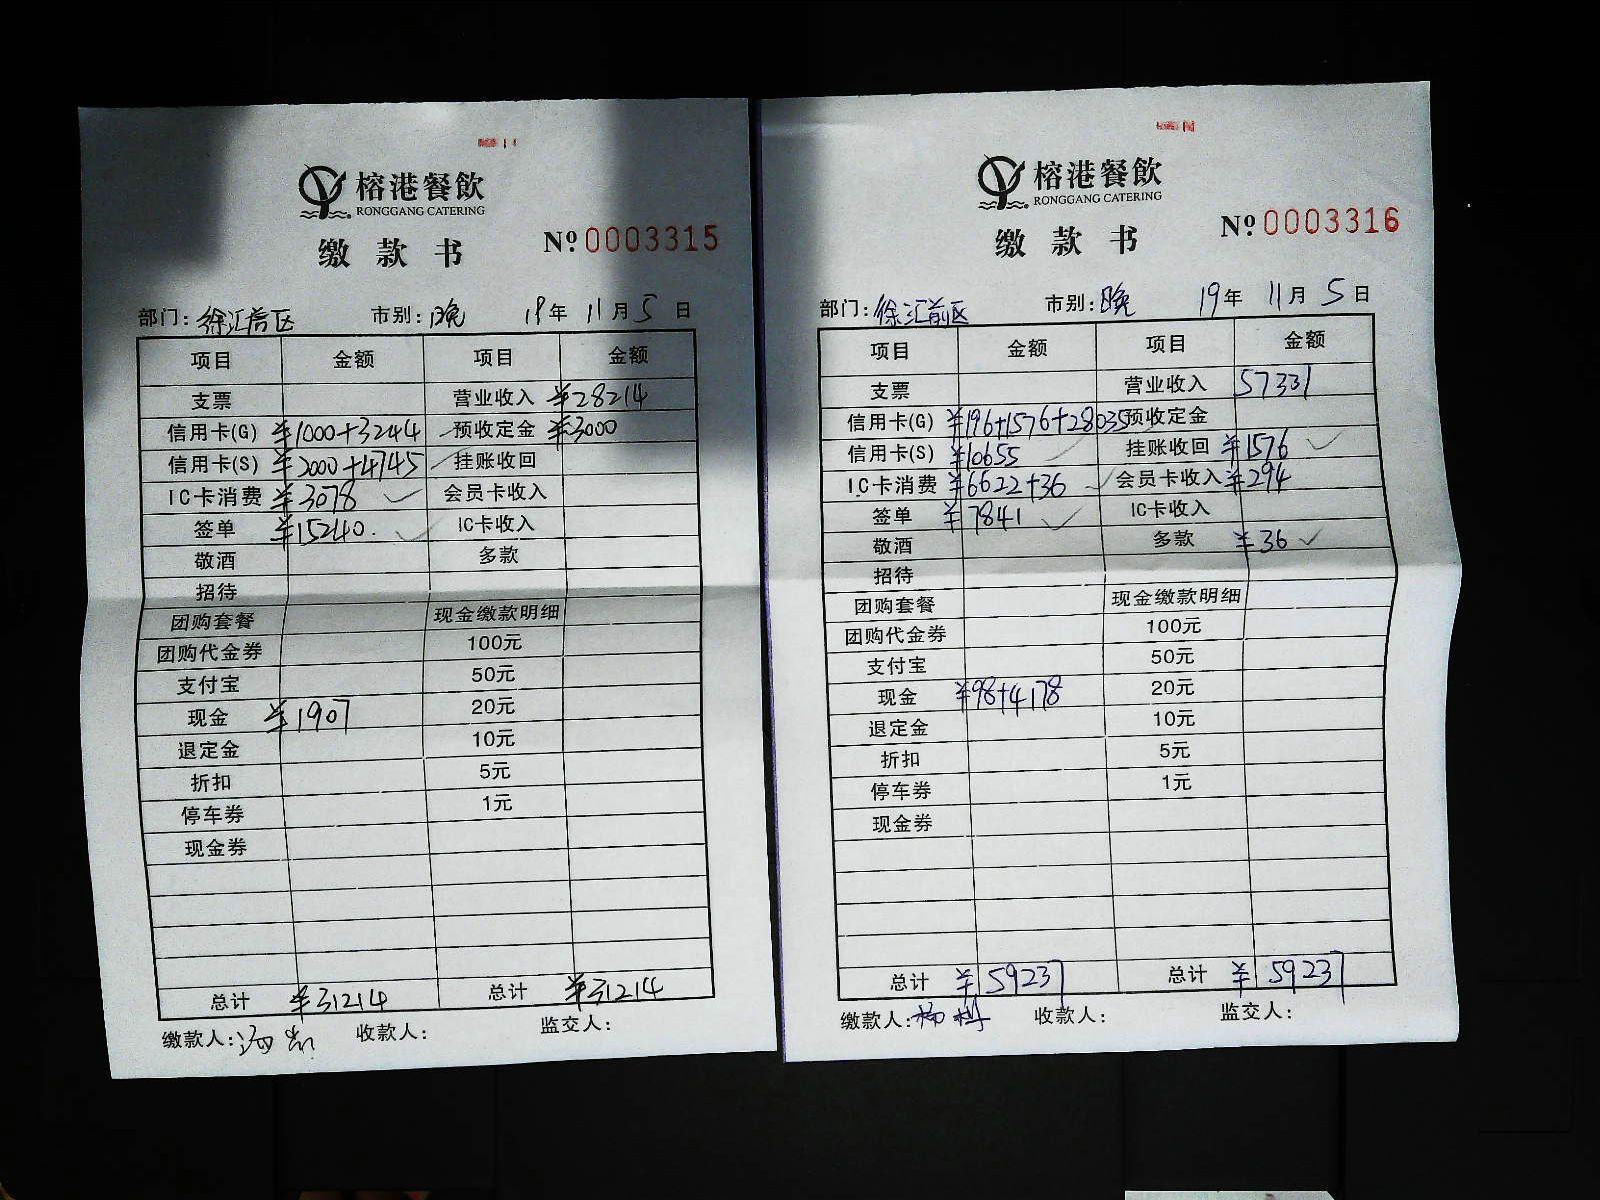 榕港餐飲
RONGGANG CATERING
缴款书 Nº 0003315
部门: 徐汇前区 市别: 晚 19年 11月 5日
项目 金额 项目 金额
支票 营业收入 ¥28214
信用卡(G) ¥1000+3244 预收定金 ¥3000
信用卡(S) ¥2000+4745 挂账收回
IC卡消费 ¥3078 会员卡收入
签单 ¥15240. IC卡收入
敬酒 多款
招待
团购套餐 现金缴款明细
团购代金券 100元
支付宝 50元
现金 ¥1907 20元
退定金 10元
折扣 5元
停车券 1元
现金券
总计 ¥31214 总计 ¥31214
缴款人: 收款人: 监交人:
榕港餐飲
RONGGANG CATERING
缴款书 Nº 0003316
部门: 徐汇前区 市别: 晚 19年 11月 5日
项目 金额 项目 金额
支票 营业收入 57331
信用卡(G) ¥196+1576+28035 预收定金
信用卡(S) ¥10655 挂账收回 ¥1576
IC卡消费 ¥6622+36 会员卡收入 ¥294
签单 ¥7841 IC卡收入
敬酒 多款 ¥36
招待
团购套餐 现金缴款明细
团购代金券 100元
支付宝 50元
现金 ¥98+4178 20元
退定金 10元
折扣 5元
停车券 1元
现金券
总计 ¥59237 总计 ¥59237
缴款人: 收款人: 监交人: